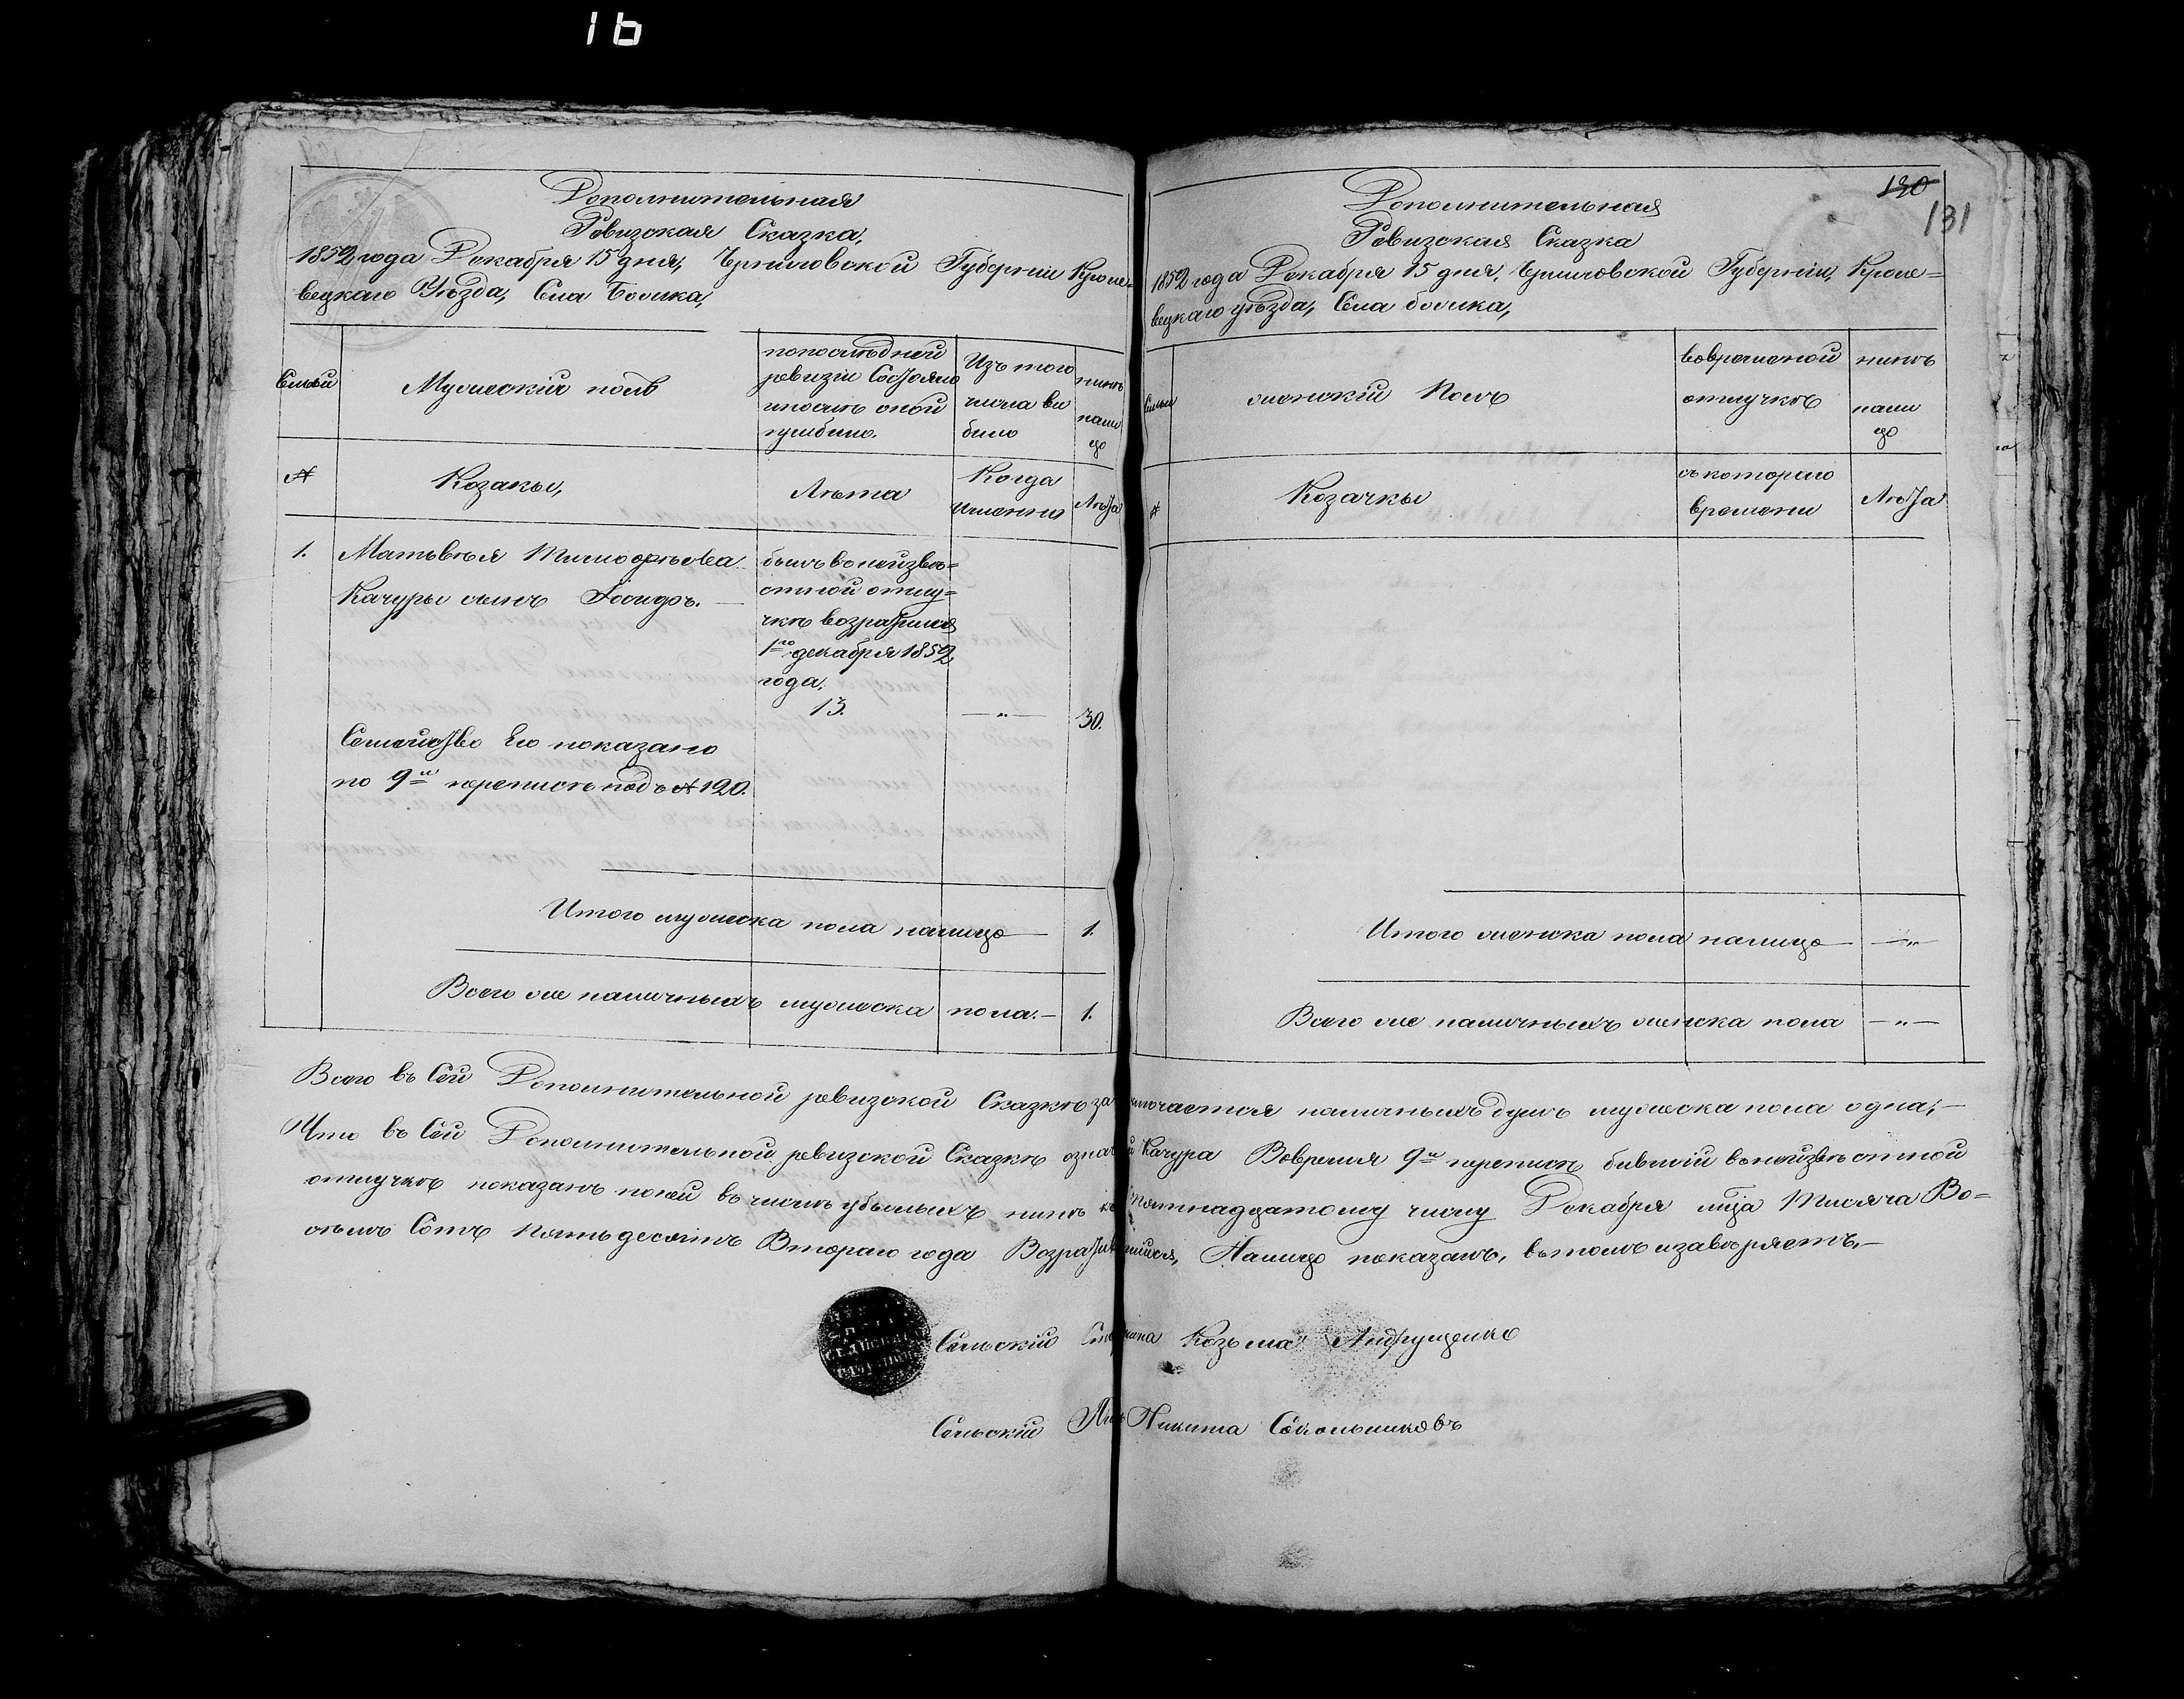 16
Дополнительная
Ревизская Сказка,
1852 года Декабря 15 дня, Черниговской Губернии Кроле=
вецкаго Уѣзда, Села
Семьи
Мужескій полъ
по послѣдней
ревизіи Состояло
и послѣ оной
прибыло.
Изъ того
числа вы
было
нынѣ
нали
цо
№
Козаки,
Лѣта
Когда
именно
Лѣта
1.
Матвѣя Тимофѣева
Качуры сынъ Іосидоръ.
былъ въ неизвѣ=
стной отлу=
чкѣ возратился
1го декабря 1852
года.
13.
—„—
30.
Семейство Его показано
по 9й переписѣ подъ № 120.
Итого мужеска пола налицо
1.
Всего же наличныхъ мужеска пола.—
1.
130
131
Дополнительная
Ревизская Сказка
1852 года Декабря 15 дня, Черниговской Губерніи, Кроле=
вецкаго уѣзда, Села
Семьи
женскій Полъ
во временой
отлучкѣ
нынѣ
нали
цо
№
Козачки
съ котораго
времени
Лѣта
Итого женска пола налицо
—„—
Всего же наличныхъ женска пола
—„—
Всего въ Сей Дополнительной ревизской Сказкѣ заключается наличныхъ душъ мужеска пола одна,—
Что въ Сей Дополнительной ревизской Сказкѣ Качура Вовремя 9й переписѣ бывшій въ неизвѣстной
отлучкѣ показанъ по ней въ числѣ убылыхъ нынѣ къ пятнадцатому числу Декабря мца Тисяча Во=
сѣмъ Сотъ Пятьдесятъ Втораго года Возратившійся, Налицо показанъ, въ томъ и завѣряетъ.—
Сельскій Старшина Козьма Андрущенко
Сельскій Никита Сокольниковъ